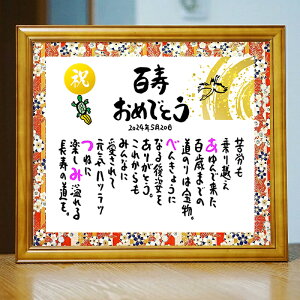 祝
百寿
おめでとう
2024年5月20日
苦労も
乗り越え
あゆんで来た
百歳までの
道のりは宝物。
べんきょうに
なる後姿を
ありがとう。
これからも
みんなに
愛されて
元気ハツラツ
つねに
楽しみ溢れる
長寿の道を。